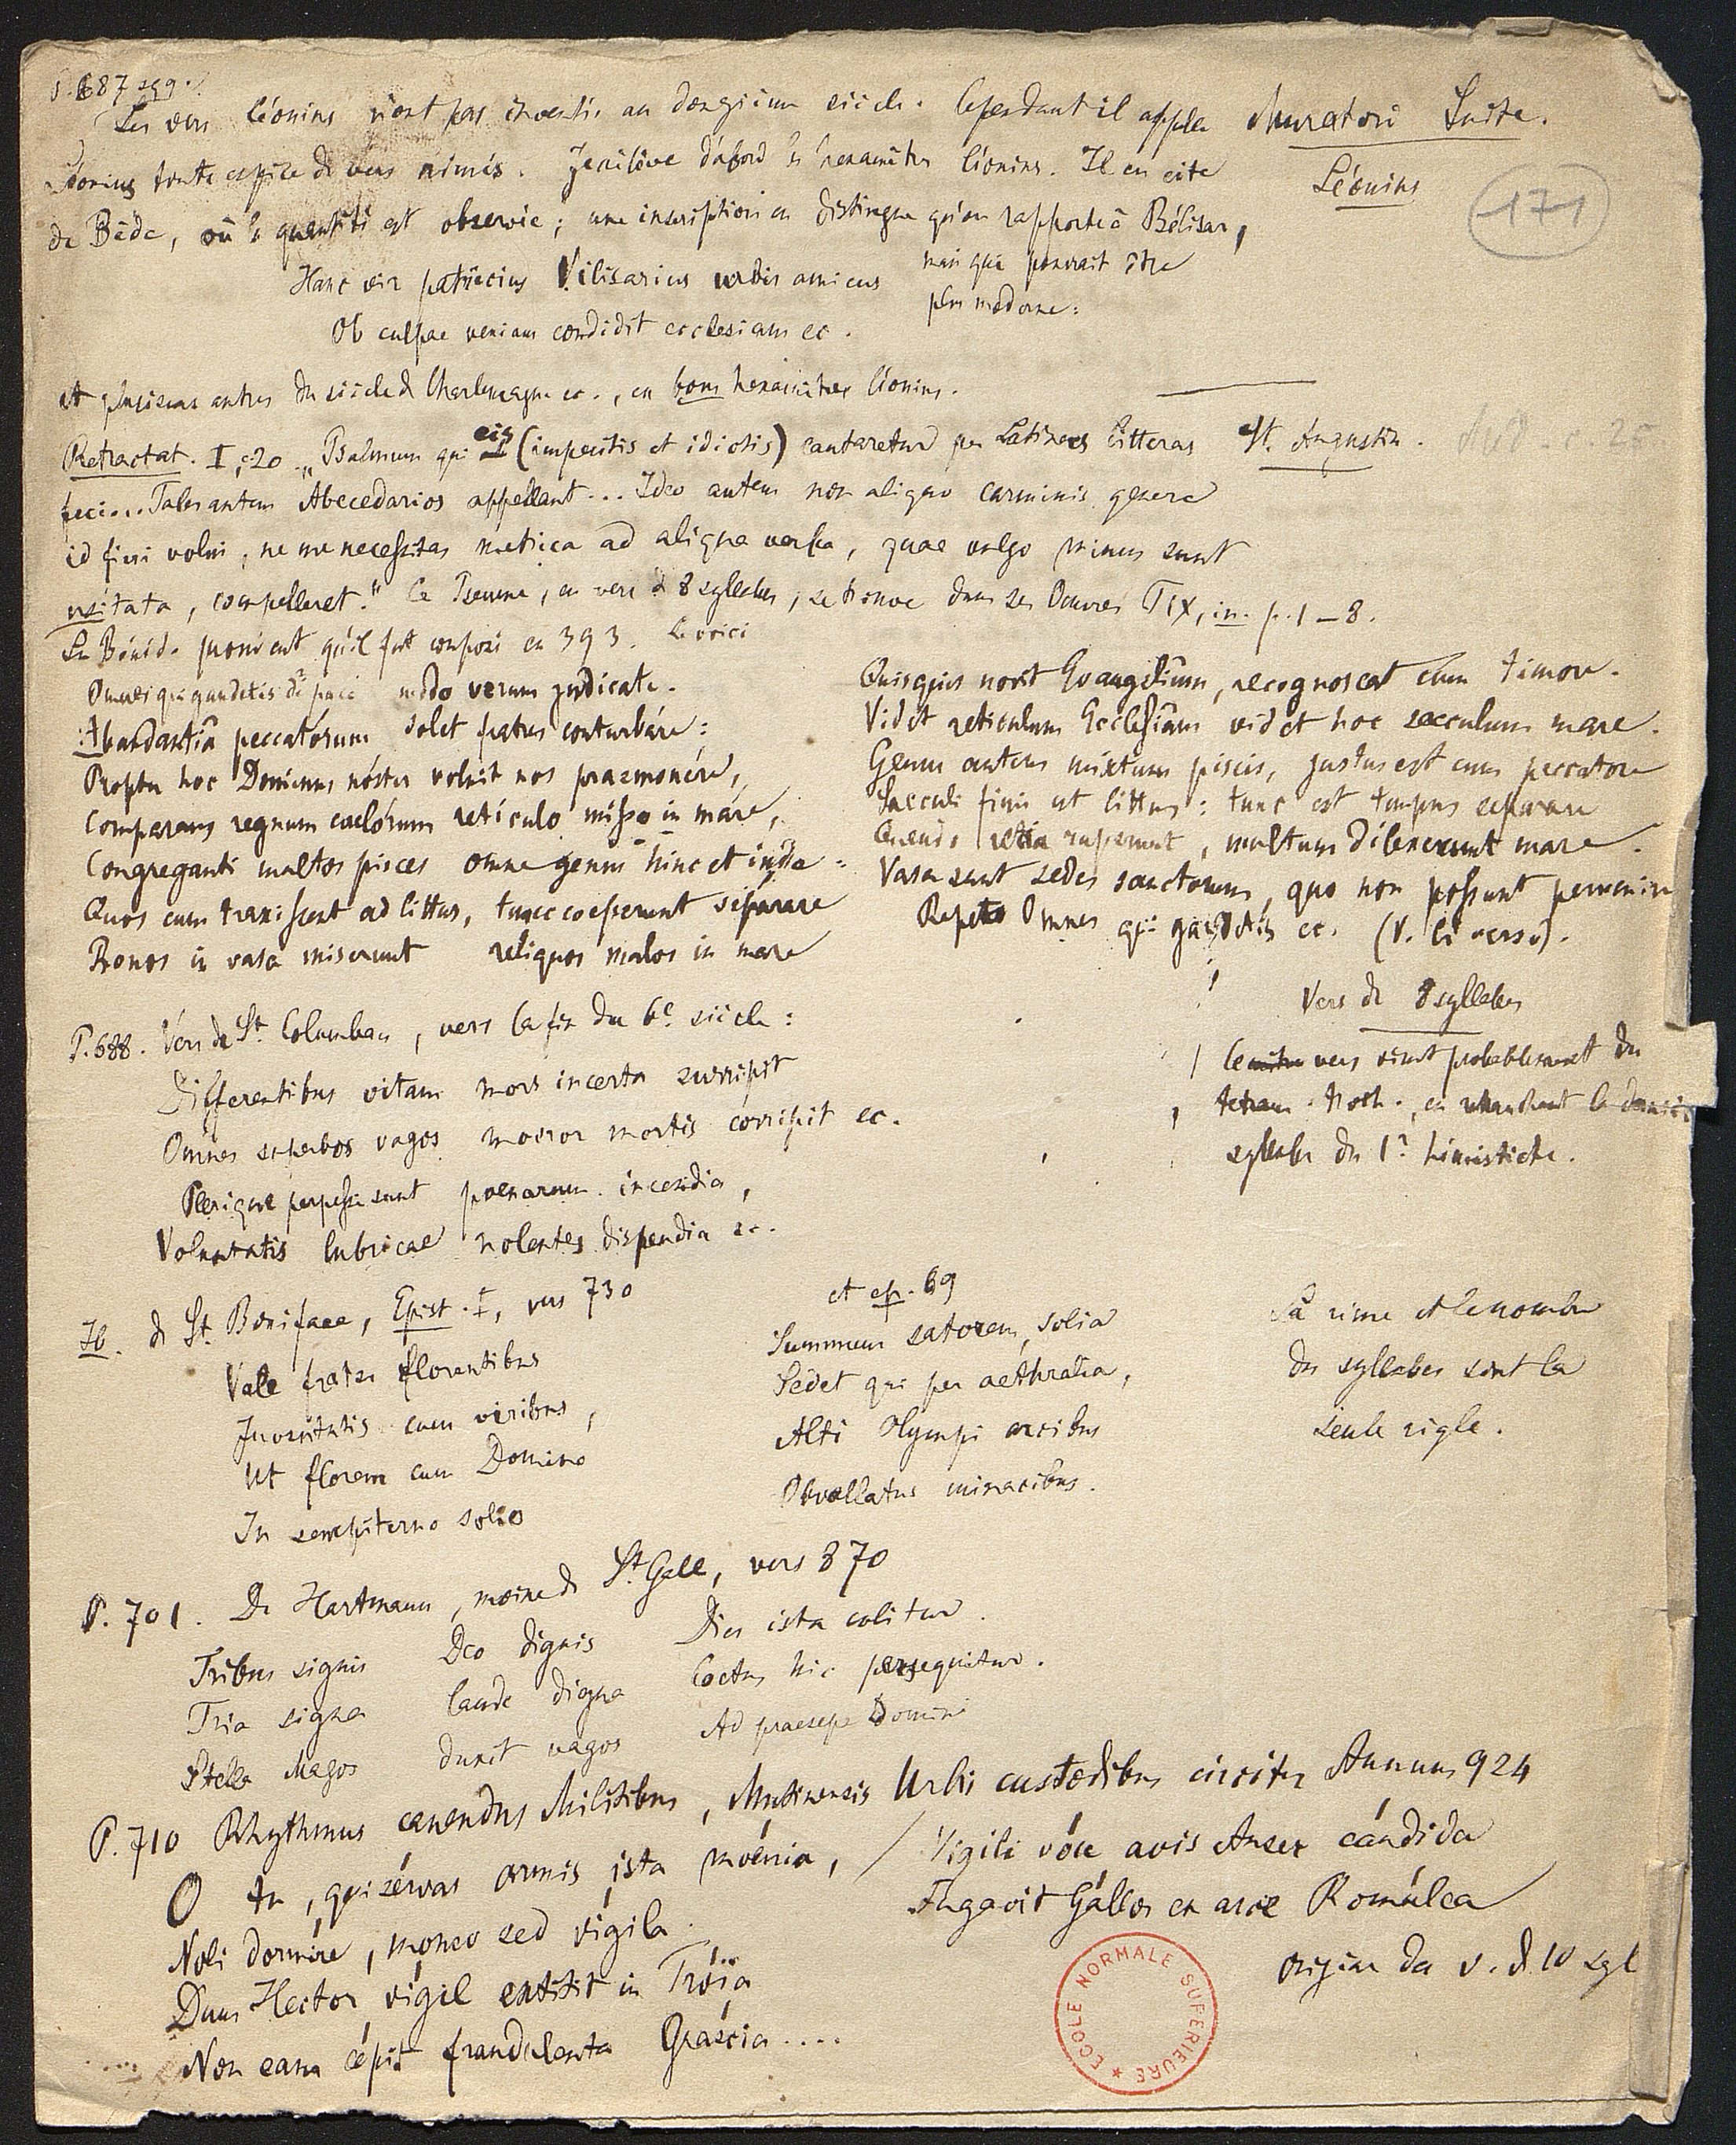 P. 687 sqq.
Les vers léonins n'ont pas inventés au onzième siècle. Cependant il appelle
Muratori Suite.
Léonins toute espèce de vers rimés. J'enlève d'abord les hexamètres léonins. Il en cite
Léonins
171
de Bède, où la quantité est observée; une inscription en distique qu'on rapporte à Bélisar,
mais qui pourrait être
plus moderne:
Hanc vir patricius Vilisarius urbis amicus
Ob culpae veniam condidit ecclesiam ec.
et plusieurs autres du siècle de Charlemagne ec., en bons hexamètres léonins.
St. Augustin.
Retractat. I, c. 20 „Psalmum qui eis (imperitis et idiotis) cantaretur per Latinas litteras
feci... Tales autem Abecedarios appellant... Ideo autem non aliquo carminis genere
id fieri volui, ne me necessitas metrica ad aliqua verba, quae vulgo minus sunt
usitata, compelleret." Ce Psaume, en vers de 8 syllabes, se trouve dans ses Oeuvres T. IX, in. p. 1–8.
Les Bénéd. prouvent qu'il fut composé en 393. Le voici
Omnes qui gaudetis de pace modo verum judicate.
Abundantiâ peccatórum solet fratres conturbáre:
Propter hoc Dominus nóster voluit nos praemonére,
Comparans regnum coelórum retículo misso in máre,
Congreganti multos pisces omne genus hinc et inde:
Quos cum traxissent ad littus, tunc coeperunt séparare
Bonos in vasa miserunt reliquos malos in mare
Quisquis novit Evangelium, recognoscat cum timore.
Videt reticulum Ecclesiam videt hoc saeculum mare.
Genus autem mixtum piscis, justus est cum peccatore
Saeculi finis est littus: tunc est tempus separare
Quando retia ruperunt, multum dilexerunt mare.
Vasa sunt sedes sanctorum, quo non possunt pervenire
Repeto Omnes qui gaudetis ec. (V. le verso).
Vers de 8 syllabes
Ce vers vient probablement du
tetram. troch., en retranchant la dernière
syllabe du 1r hémistiche.
P. 688. Vers de St. Colomban, vers la fin du 6e siècle:
Differentibus vitam mors incerta surripit
Omnes superbos vagos moeror mortis corripit ec.
Plerique perpessi sunt poenarum incendia,
Voluntatis lubricae nolentes dispendia ec.
Ib. de St. Boniface, Epist. I, vers 730
Vale frater florentibus
Juventutis cum viribus,
Ut florem cum Domino
In sempiterno solio
et ep. 69
Summum satorem, solia
Sedet qui per aethralia,
Alti Olympi arcibus
Obvallatus minacibus.
La rime et le nombre
des syllabes sont la
seule règle.
P. 701. De Hartmann, moine de St. Gall, vers 870
Tribus signis Deo dignis Dies ista colitur.
Tria signa laude digna Coetus hic persequitur.
Stella Magos duxit vagos Ad praesepe Domini
P. 710 Rhythmus canendus Militibus, Mutinensis Urbis custodibus circiter Annum 924
O tu, qui sérvas armis ísta moénia,
Noli dormíre, moneo sed vígila.
Dum Hector vígil extitit in Tróïa
Non eam cépit fraudulenta Graécia....
/ Vigili vóce avis Anser cándida
Fugavit Gállos ex arce Romúlea
origine du v. de 10 syl
ECOLE NORMALE SUPERIEURE